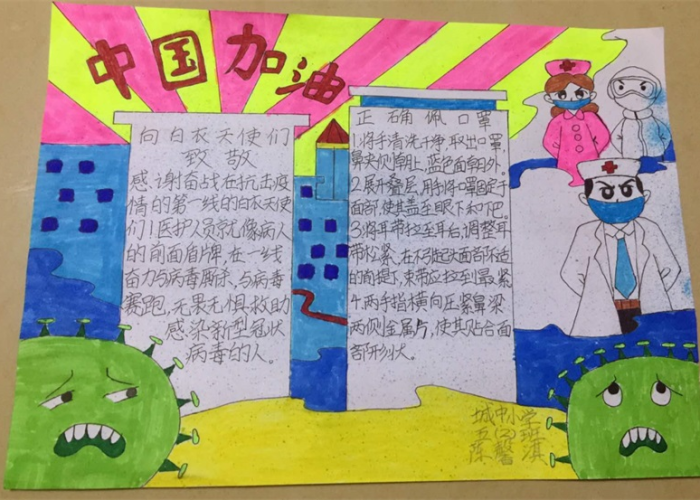 中国加油
向白衣天使们
致敬
感谢奋战在抗击疫
情的第一线的白衣天使
们！医护人员就像病人
的前面盾牌，在一线
奋力与病毒厮杀，与病毒
赛跑，无畏无惧救助
感染新型冠状
病毒的人。
正确佩口罩
1.将手清洗干净，取出口罩
鼻夹侧朝上，蓝色面朝外。
2.展开叠层，用手将口罩固定于
面部，使其盖至眼下和下巴。
3.将耳带拉至耳后，调整耳
带松紧，在不引起头面部不适
的前提下，束带应拉到最紧
4.两手指横向压紧鼻梁
两侧金属片，使其贴合面
部形状。
城中小学
五(3)班
陈馨淇